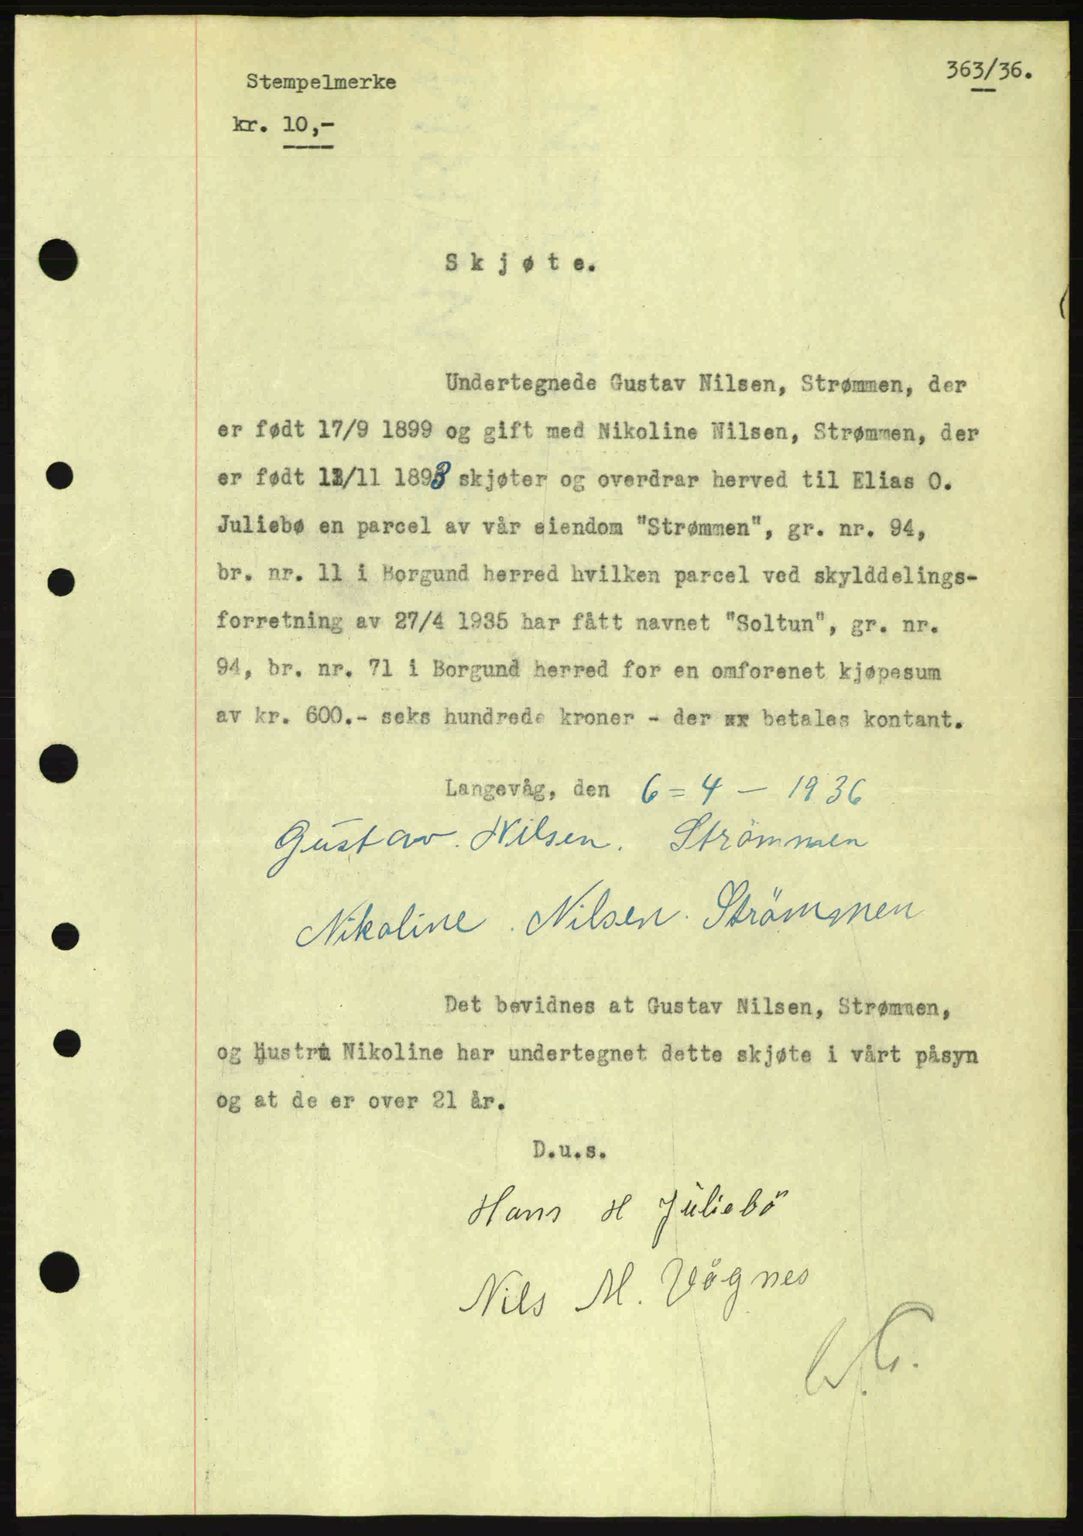 363/36.
Stempelmerke
kr. 10,-
Skjøte.
Undertegnede Gustav Nilsen, Strømmen, der
er født 17/9 1899 og gift med Nikoline Nilsen, Strømmen, der
er født /11 1893 skjøter og overdrar herved til Elias O.
Juliebø en parcel av vår eiendom "Strømmen", gr. nr. 94,
br. nr. 11 i Borgund herred hvilken parcel ved skylddelings-
forretning av 27/4 1935 har fått navnet "Soltun", gr. nr.
94, br. nr. 71 i Borgund herred for en omforenet kjøpesum
av kr. 600.- seks hundrede kroner - der betales kontant.
Langevåg, den 6=4 - 1936
Gustav. Nilsen. Strömmen
Nikoline . Nilsen. Strömmen
Det bevidnes at Gustav Nilsen, Strømmen,
og hustru Nikoline har undertegnet dette skjøte i vårt påsyn
og at de er over 21 år.
D.u.s.
Hans H Juliebö
Nils M. Vågnes